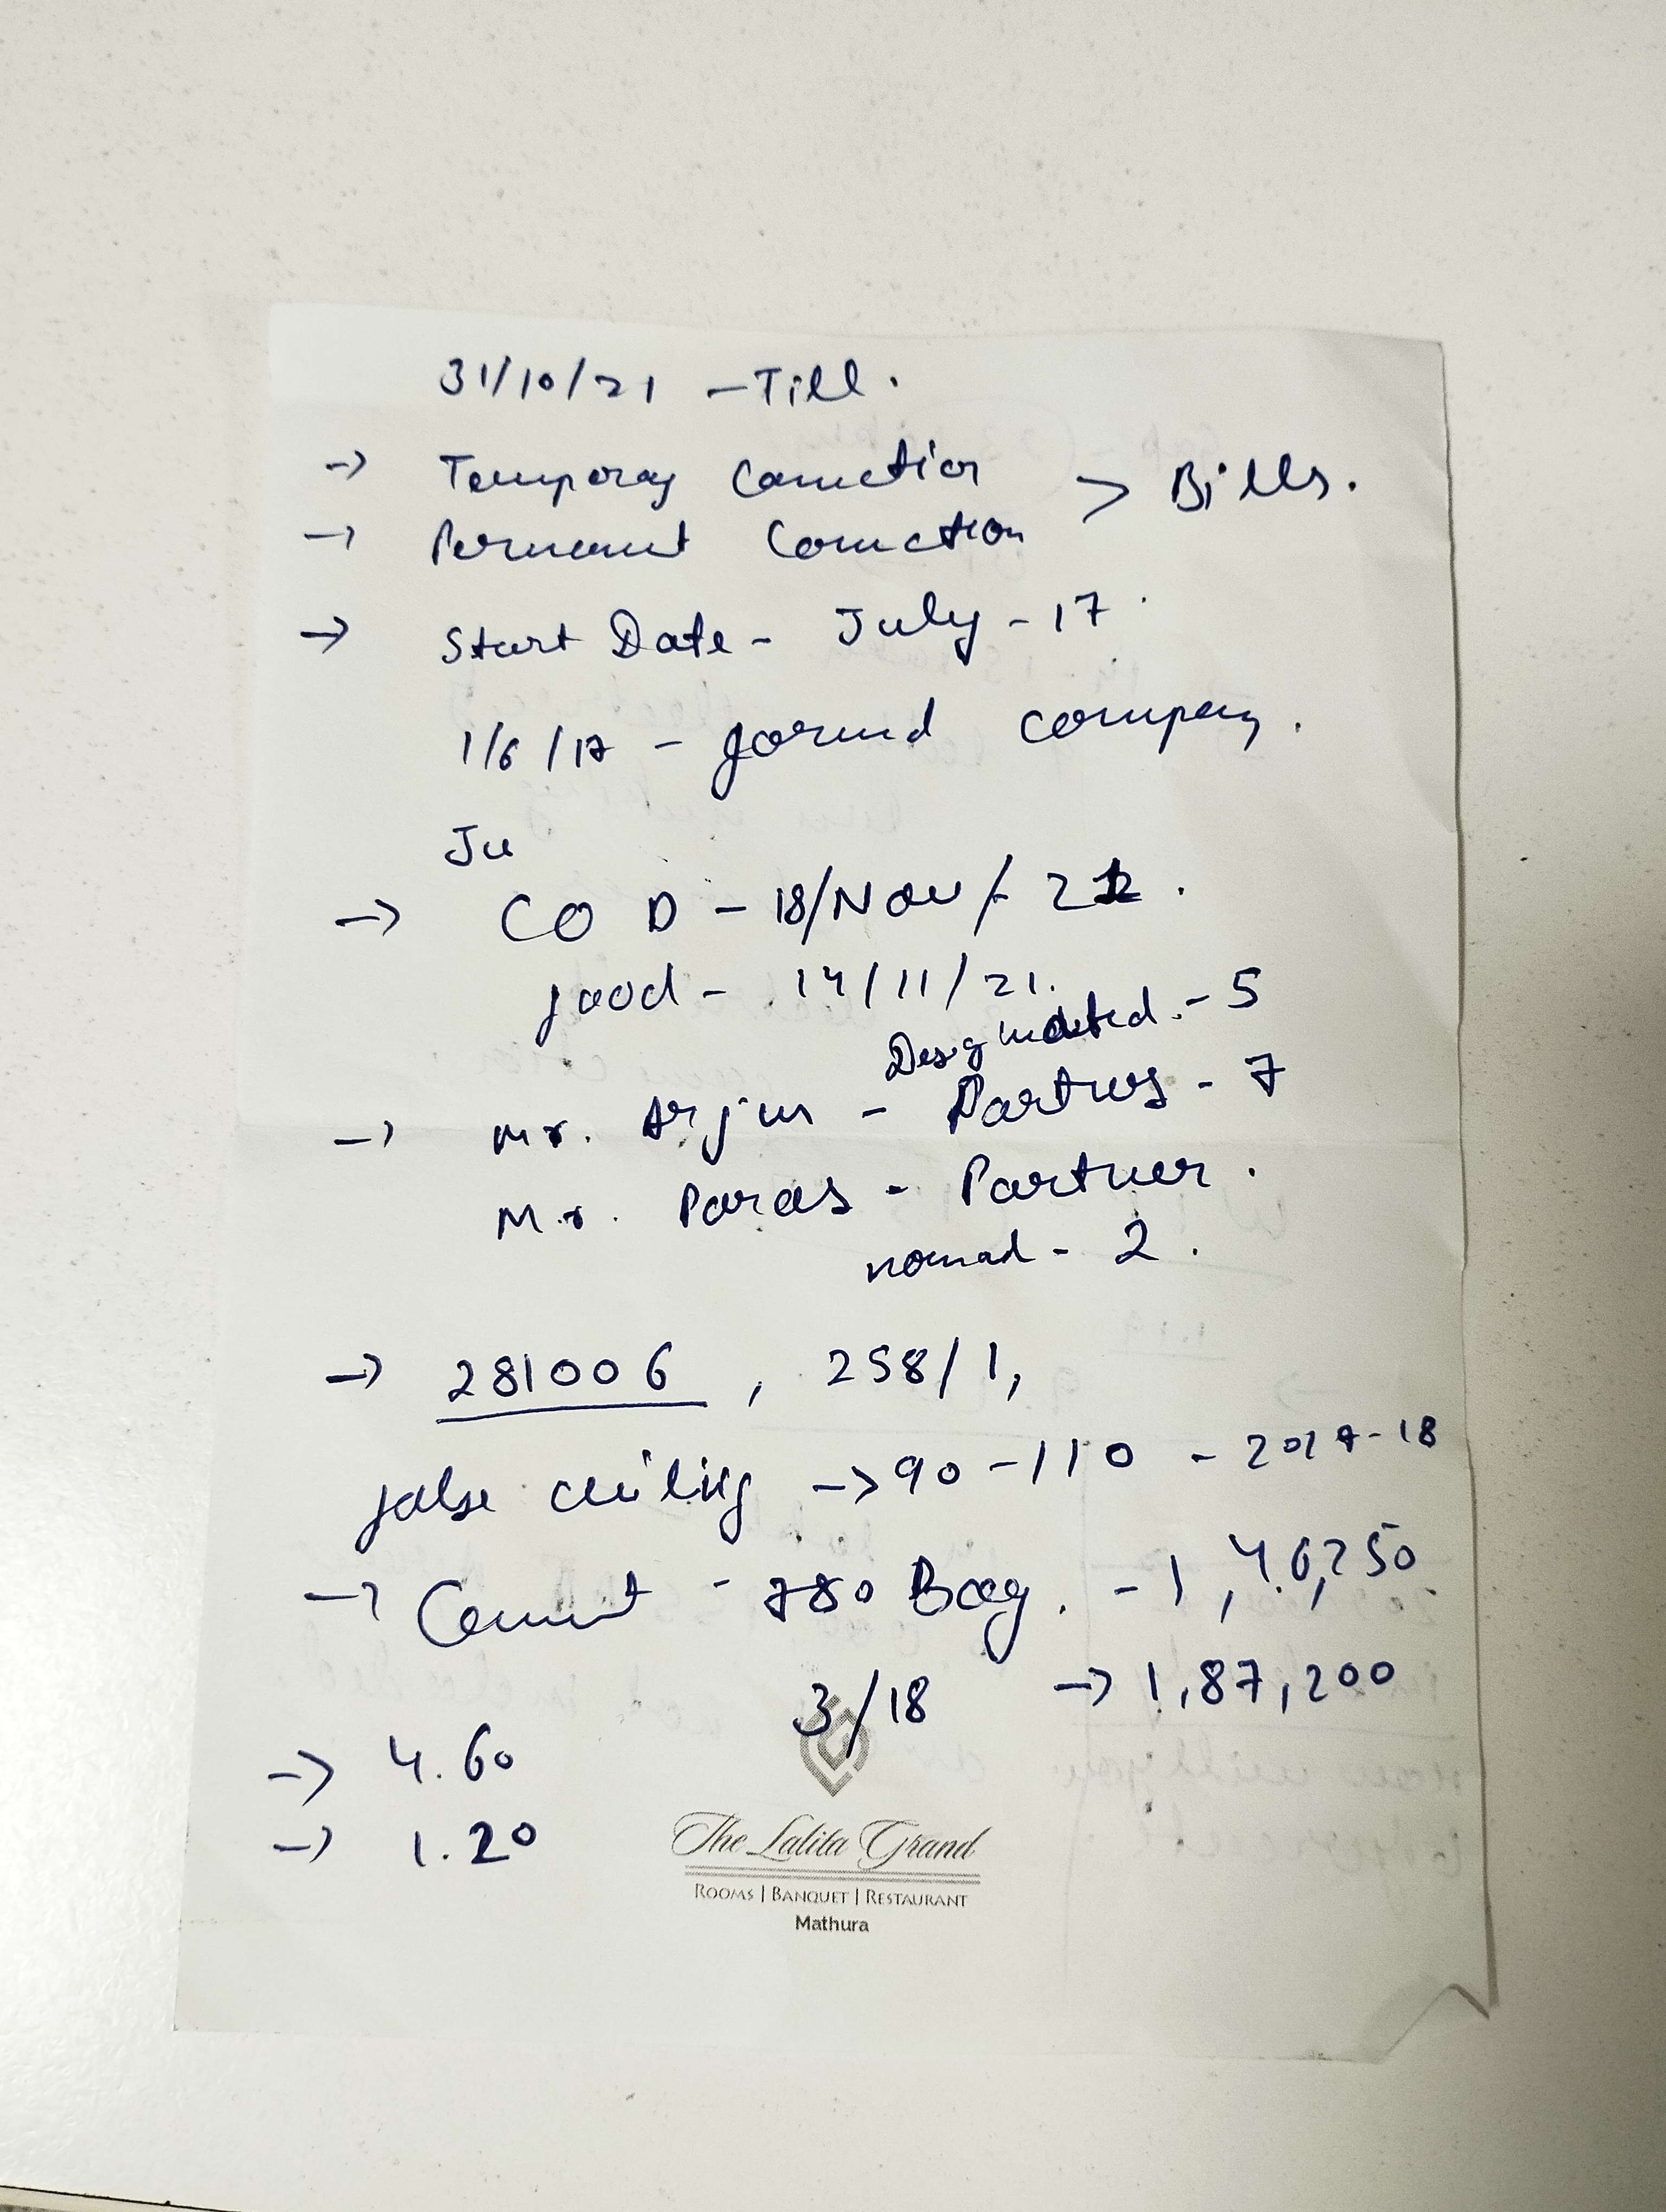 31/10/21 - Till.
→ Temporay Conection
> Bills.
→ Permanent Conection
→ Start Date - July - 17
1/6/17 - formed company.
Ju
→ COD - 18/Nov/22.
food - 14/11/21.
Designated - 5
→ Mr. Arjun - Partners - 7
Mr. Paras - Partner.
normal - 2.
→ 281006, 258/1,
false ceiling → 90-110 - 2017-18
→ Cement - 780 Bag. - 1,46,250
3/18 → 1,87,200
→ 4.60
→ 1.20
The Lalita Grand
ROOMS | BANQUET | RESTAURANT
Mathura